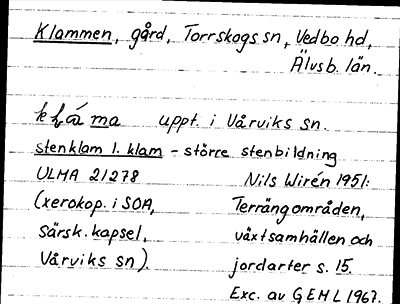 Klammen, gård, Torrskogs sn, Vedbo hd,
Älvsb. län.
uppt. i Vårviks sn.
stenklam l. klam - större stenbildning
ULMA 21278 Nils Wirén 1951:
(xerokop. i SOA, Terrängområden,
särsk. kapsel, växtsamhällen och
Vårviks sn). jordarter s. 15.
Exc. av GEHL 1967.